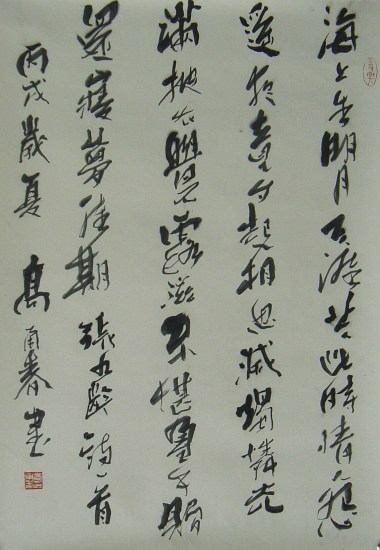 海上生明月天涯共此時情人怨
遙夜竟夕起相思滅燭憐光
滿披衣覺露滋不堪盈手贈
還寢夢佳期張九齡詩一首
丙戌歲夏高春書